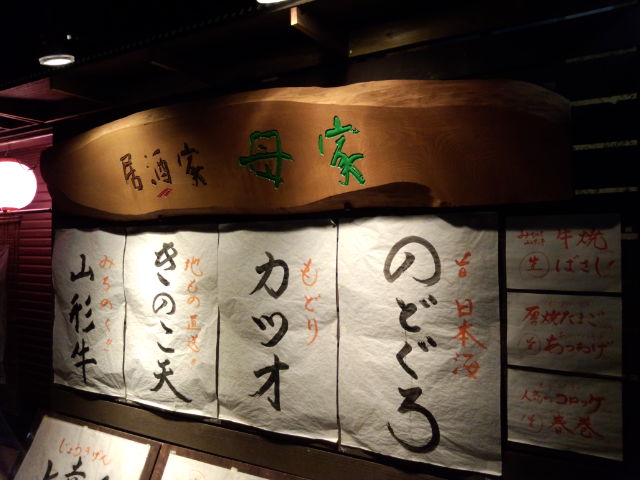 居酒家 母家
旨 日本海
のどぐろ
もどり
カツオ
地もの直送!
きのこ天
みちのく!!
山形牛
牛焼
生 ばさし!
厚焼たまご
あつあげ
人気のコロッケ
春巻
じょうきげん